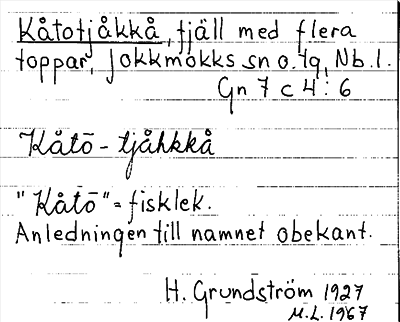 Kåtotjåkkå, fjäll med flera
toppar, Jokkmokks sn o. tg, Nb. l.
Gn 7 c 4 : 6
Kåtō - tjåhkkå
"Kåtō" = fisklek.
Anledningen till namnet obekant.
H. Grundström 1927
M.L. 1967